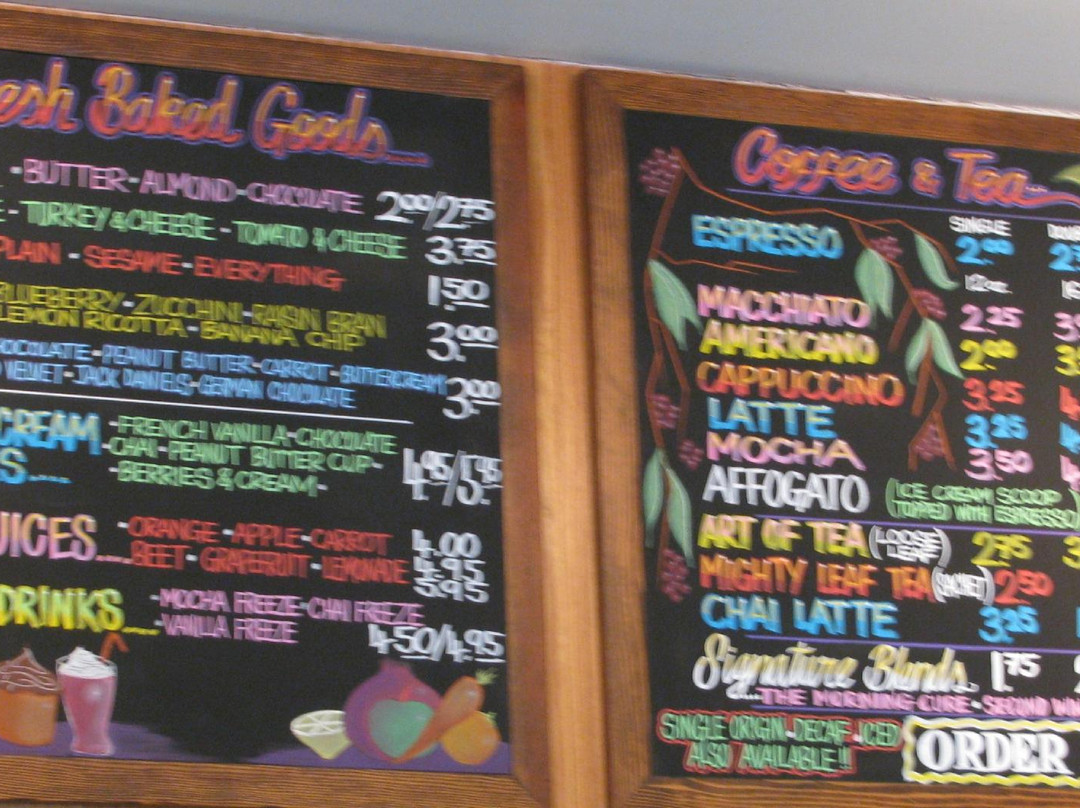 esh Baked Goods....
- BUTTER - ALMOND - CHOCOLATE 2.00/2.75
E - TURKEY & CHEESE - TOMATO & CHEESE 3.75
PLAIN - SESAME - EVERYTHING 1.50
BLUEBERRY - ZUCCHINI - RAISIN BRAN
LEMON RICOTTA - BANANA CHIP 3.00
HOCOLATE - PEANUT BUTTER - CARROT - BUTTERCREAM
VELVET - JACK DANIELS - GERMAN CHOCOLATE 3.00
CREAM - FRENCH VANILLA - CHOCOLATE
S.... - CHAI - PEANUT BUTTER CUP - 4.95/5.95
- BERRIES & CREAM -
UICES.... - ORANGE - APPLE - CARROT 4.00
BEET - GRAPEFRUIT - LEMONADE 4.95
5.95
DRINKS.... - MOCHA FREEZE - CHAI FREEZE
- VANILLA FREEZE 4.50/4.95
Coffee & Tea...
SINGLE
ESPRESSO 2.00
12oz.
MACCHIATO 2.25
AMERICANO 2.00
CAPPUCCINO 3.25
LATTE 3.25
MOCHA 3.50
AFFOGATO (ICE CREAM SCOOP
TOPPED WITH ESPRESSO)
ART OF TEA (LOOSE LEAF) 2.75
MIGHTY LEAF TEA (SACHET) 2.50
CHAI LATTE 3.25
Signature Blends. 1.75
....THE MORNING CURE - SECOND WI
SINGLE ORIGIN - DECAF - ICED
ALSO AVAILABLE!!
ORDER